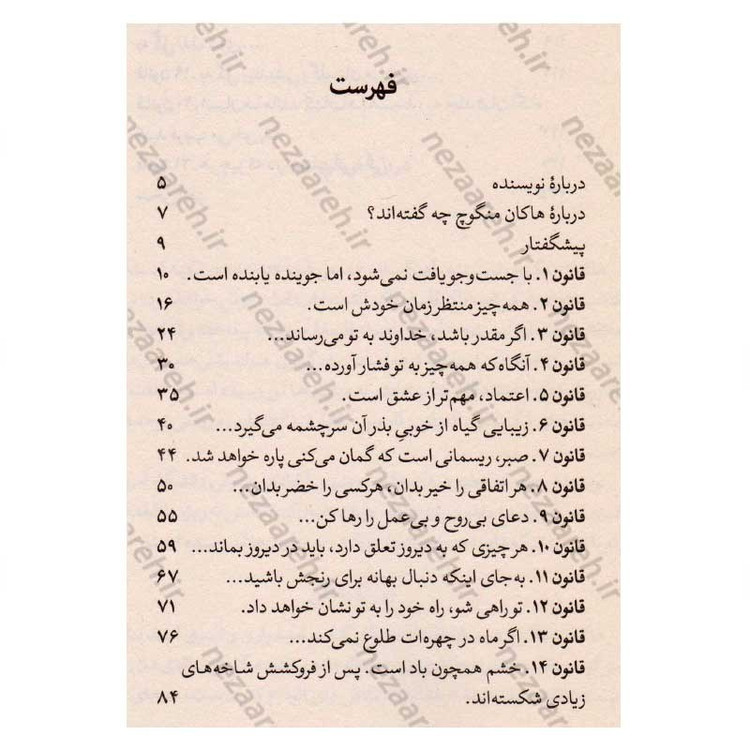 فهرست
دربارهٔ نویسنده ۵
دربارهٔ هاکان منگوچ چه گفته‌اند؟ ۷
پیشگفتار ۹
قانون ۱. با جست‌وجو یافت نمی‌شود، اما جوینده یابنده است. ۱۰
قانون ۲. همه‌چیز منتظر زمان خودش است. ۱۶
قانون ۳. اگر مقدر باشد، خداوند به تو می‌رساند... ۲۴
قانون ۴. آنگاه که همه‌چیز به تو فشار آورده... ۳۰
قانون ۵. اعتماد، مهم‌تر از عشق است. ۳۵
قانون ۶. زیبایی گیاه از خوبیِ بذر آن سرچشمه می‌گیرد... ۴۰
قانون ۷. صبر، ریسمانی است که گمان می‌کنی پاره خواهد شد. ۴۴
قانون ۸. هر اتفاقی را خیر بدان، هرکسی را خضر بدان... ۵۰
قانون ۹. دعای بی‌روح و بی‌عمل را رها کن... ۵۵
قانون ۱۰. هر چیزی که به دیروز تعلق دارد، باید در دیروز بماند... ۵۹
قانون ۱۱. به‌جای اینکه دنبال بهانه برای رنجش باشید... ۶۷
قانون ۱۲. تو راهی شو، راه خود را به تو نشان خواهد داد. ۷۱
قانون ۱۳. اگر ماه در چهره‌ات طلوع نمی‌کند... ۷۶
قانون ۱۴. خشم همچون باد است. پس از فروکشش شاخه‌های
زیادی شکسته‌اند. ۸۴
nezaareh.ir
nezaareh.ir
nezaareh.ir
nezaareh.ir
nezaareh.ir
nezaareh.ir
nezaareh.ir
nezaareh.ir
nezaareh.ir